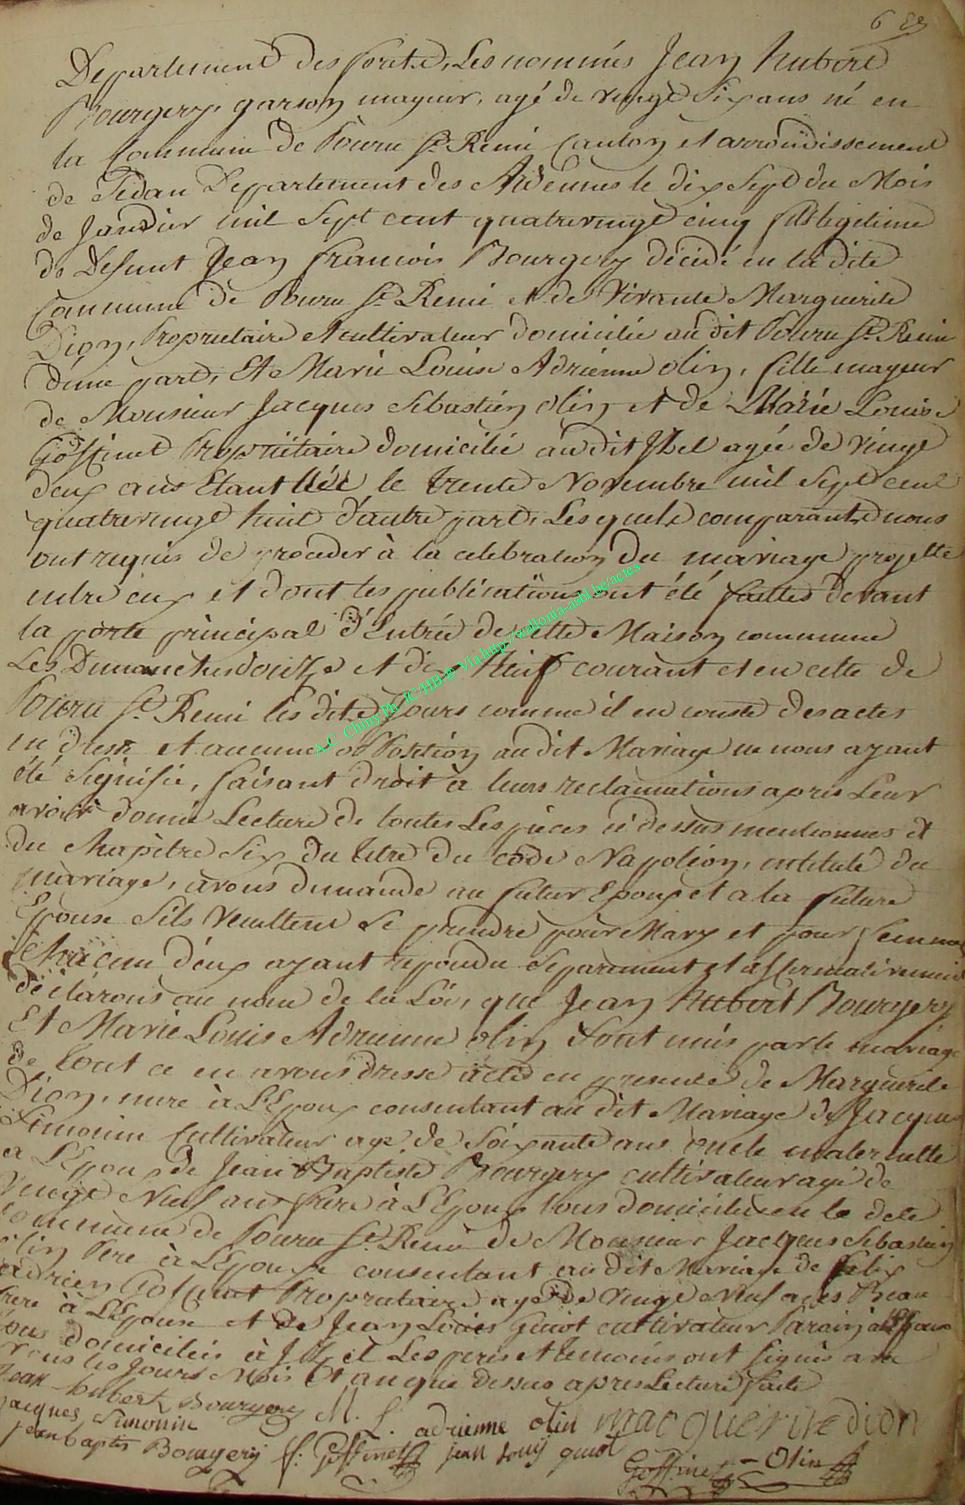 6
Departement des foretz, Les nommés Jean Hubert
Bourgery, garson mayeur, agé de vingt Six ans né en
la Commune de Pouru St Remi Canton et arrondissement
de Sedan Departement des Ardennes le dix Sept du Mois
de Janvier mil Sept cent quatrevingt cinq fils legitime
de Defunt Jean francois Bourgery décédé en la dite
Commune de Pouru St Remi et de vivante Marguerite
Dion, Propriétaire et cultivateur domicilié audit Pouru St Remi
d'une part, Et Marie Louise Adrienne olin, fille mayeur
de Monsieur Jacques Sebastien olin et de Marie Louise
Goffinet Propriétaire domicilié audit Izel agée de vingt
deux ans Etant née le trente Novembre mil Sept cent
quatrevingt huit d'autre part, Lesquels comparants nous
ont requis de proceder à la celebration du mariage projetté
entre eux et dont les publications ont été faittes devant
la porte principal d'Entrée de cette Maison commune
Les Dimanches douze et dix Neuf courant et en celle de
Pouru St Remi lesdits Jours comme il en conste des actes
et aucune opposition audit Mariage ne nous ayant
été Signifié, faisant droit à leurs reclamations apres Leur
avoir donné Lecture de toutes Les pièces ci dessus mentionnées et
du Chapitre Six du titre du code Napoléon, intitulé du
mariage, avons demandé au futur Epoux et a la future
Epouse S'ils veullent Se prendre pour Mary et pour femme
Chacun d'eux ayant repondu Separement et affirmativement
déclarons au nom de la Loi, que Jean Hubert Bourgery
Et Marie Louise Adrienne olin Sont unis par le mariage
de tout ce en avons dressé acte en presence de Marguerite
Dion, mere à L'Epoux consentant audit Mariage de Jacques
Simonin Cultivateur agé de Soixante ans oncle maternelle
a L'Epoux de Jean Baptiste Bourgery cultivateur agé de
vingt Neuf ans frère à L'Epoux tous domiciliés en la dite
Commune de Pouru St Remi de Monsieur Jacques Sebastien
olin Pere à L'Epouse consentant audit Mariage de felix
adrien Goffinet Propriétaire agé de vingt Neuf ans Beau
frere à L'Epouse et de Jean Louis Guiot cultivateur Parain à
tous domiciliés à Izel et Les peres et temoins ont Signés avec
nous les Jours Mois Et an que dessus apres Lecture faite
Jean hubert Bourgery M. L. adrienne olin Macquerite dion
jacques Simonin
jean baptis Bourgery f: Goffinet jean louis guiot Goffinet - Olin
A.C. Chiny Ph. JC/HB @ Via http://wallonia-asbl.be/actes